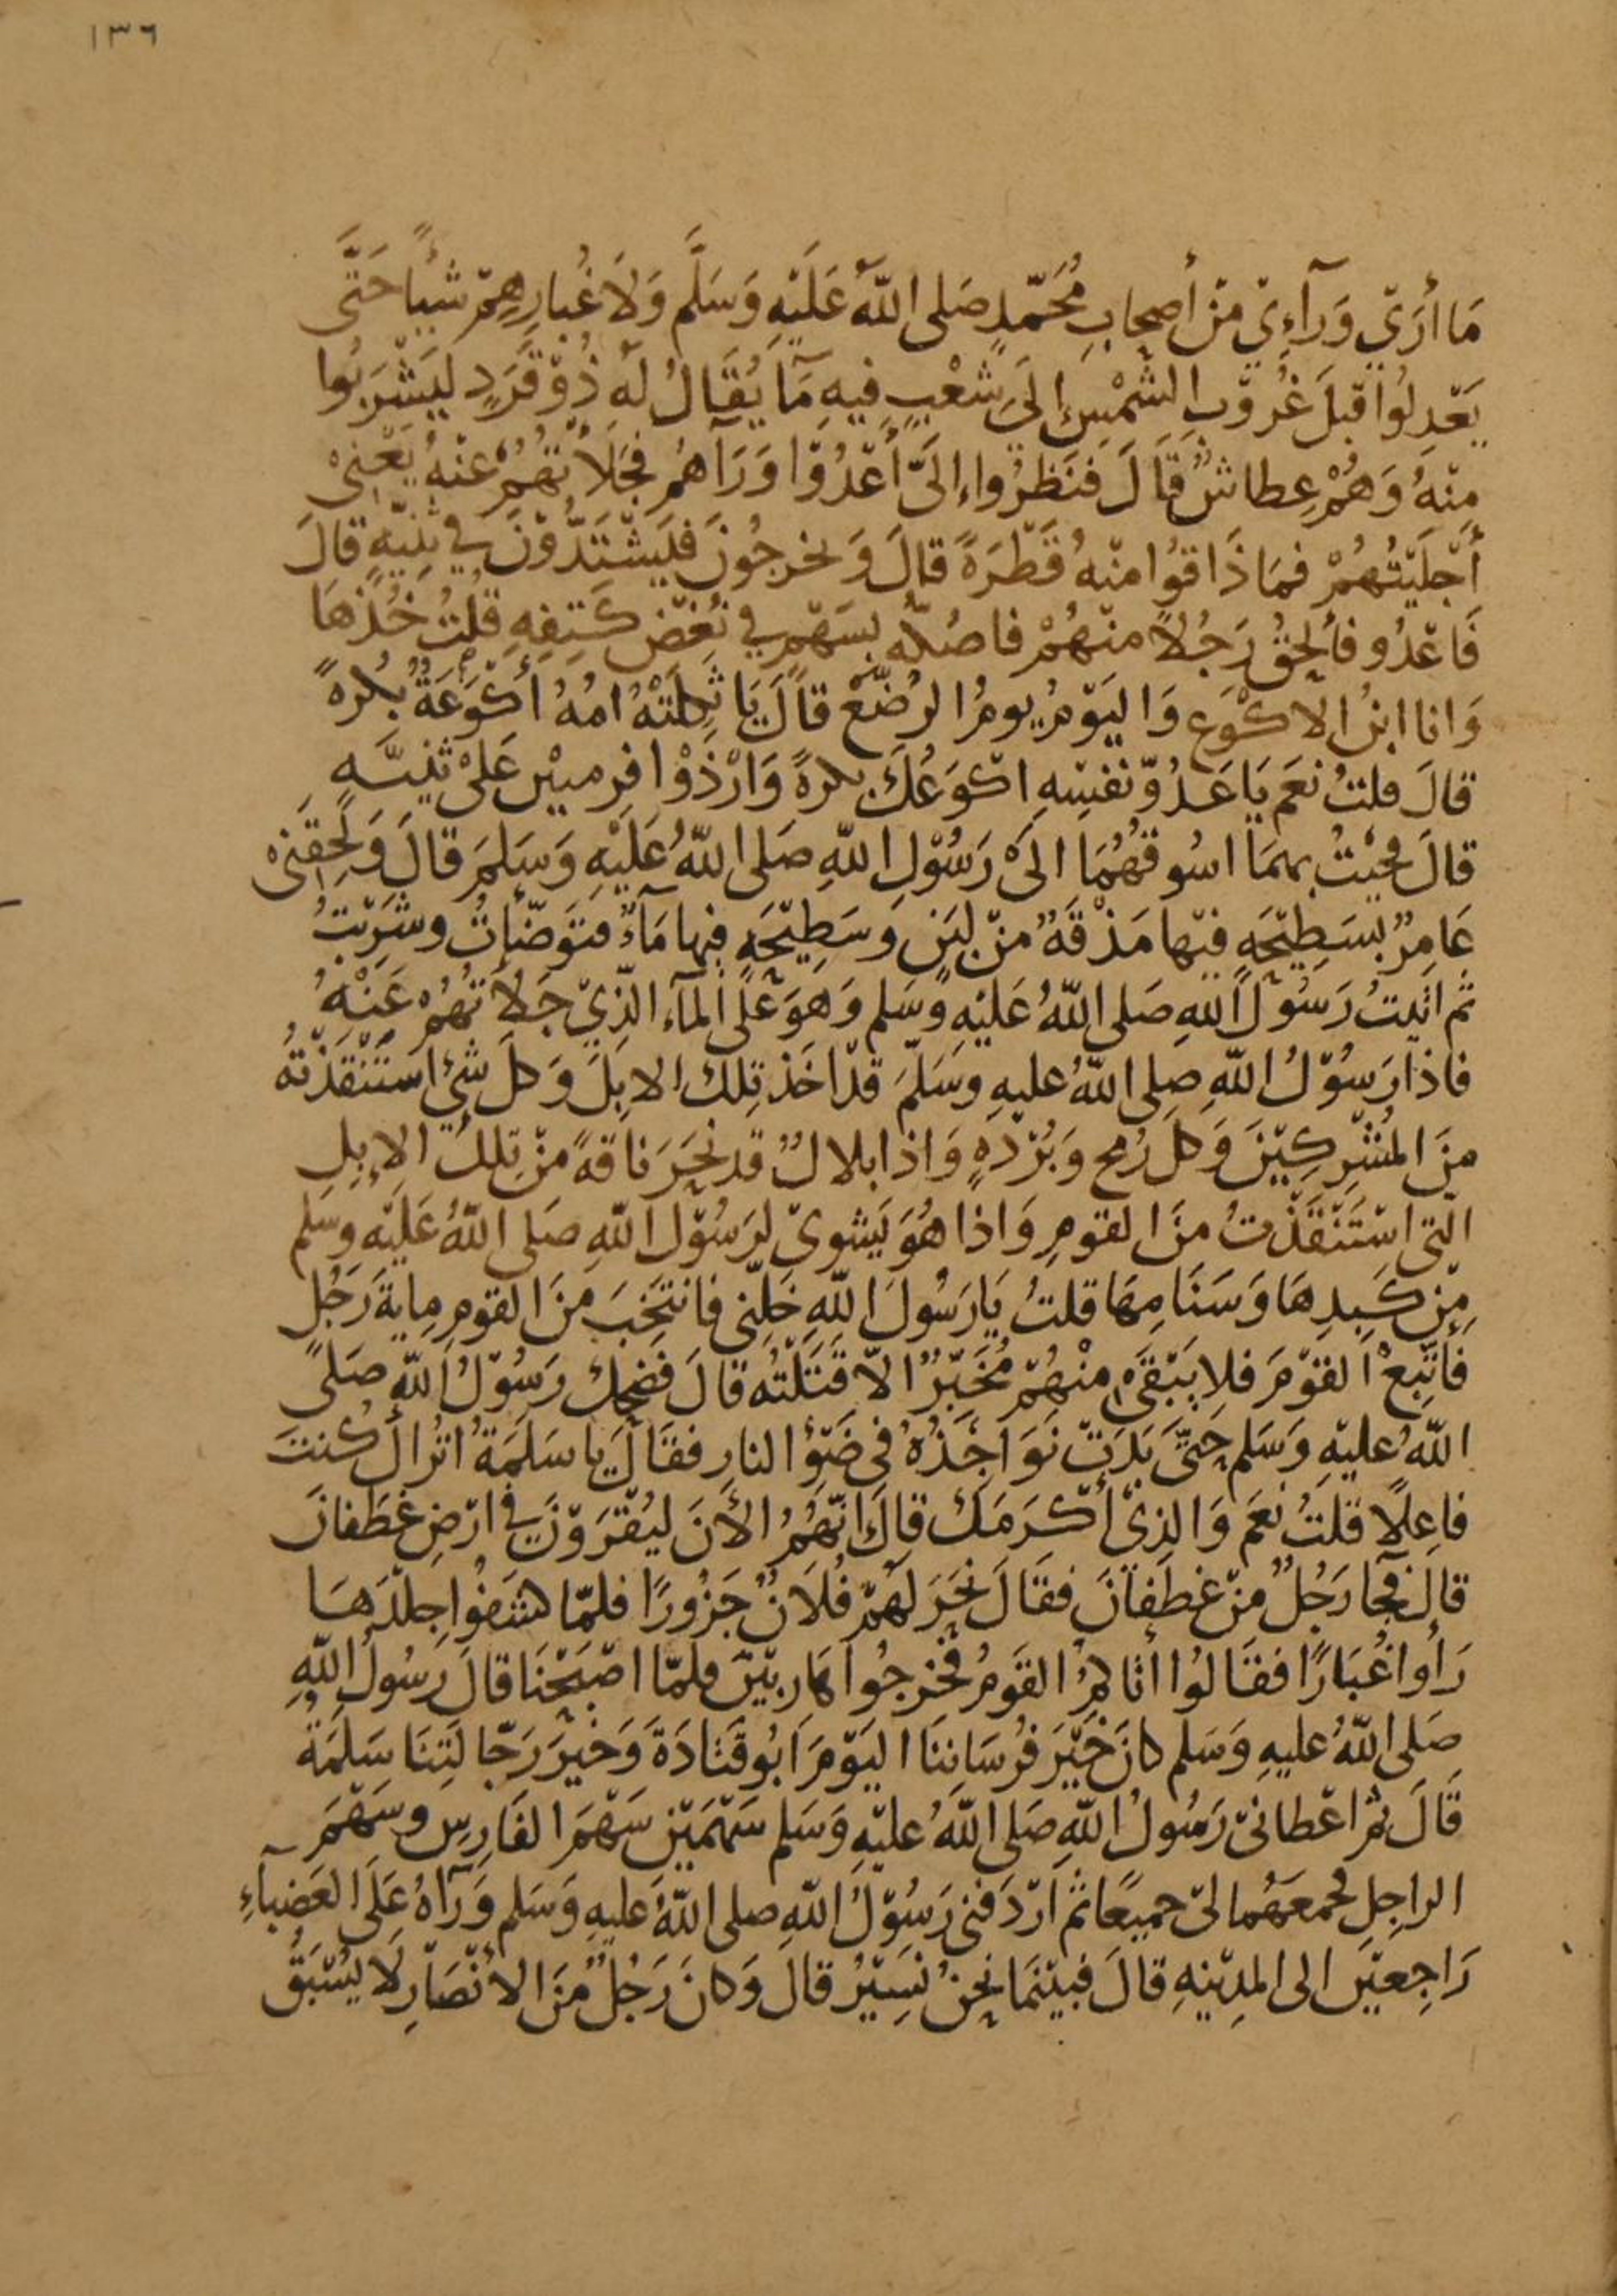 ١٣٦
مَا أرَي وَرآءِي مِنْ أصحابِ مُحَمّدٍ صَلى اللّهُ عَلَيْهِ وَسَلَّم وَلَا غُبارِهِمْ شَيْئًا حَتَّى
يَعْدِلُوا قَبلَ غُرُوْبِ الشَمْسِ إلَى شَعْبٍ فِيهِ مَآ يُقَالُ لَه ذُوْ قَرَدٍ لِيَشْرَبُوا
مِنْهُ وَهُمْ عِطاشٌ قَالَ فَنَظَرُوا إلَىَّ أَعْدُوْا وَرَآهُمْ فَجَلَأْتُهُمْ عَنْهُ يَعْنِي
أَجْلَيْتُهُمْ فمَا ذَاقوُا مِنْهُ قَطْرَةً قالَ وَيخرجُونَ فَيَشْتَدُّوْنَ في ثَنِيّهٍ قالَ
فَاعْدُو فألحَقُ رَجُلاً مِنْهُمْ فاصُكّه بِسَهْمٍ في نُغْضِ كَتِفِهِ قُلْتُ خُذْهَا
وَانا ابنُ الاكْوَع وَاليَوْمُ يومُ الرُضَّعْ قَالَ يَا ثَكِلَتْهُ امُهُ أَكْوَعَهُ بُكرةً
قالَ قلتُ نعَم يَا عَدُوّ نَفْسِهِ اكْوَعُكَ بكرةً وَارْذَوْا فرسَيْن عَلىْ ثَنِيّهٍ
قالَ فجِيْتُ بهمَا اسُوقُهُمَا الىَ رَسُوْلِ اللّهِ صَلى اللّهُ عَلَيْهِ وَسَلمَ قالَ وَلَحِقَنِىْ
عَامِرٌ بسَطِيْحَهٍ فِيْها مَذْقَهٌ مِنْ لبَنٍ وَسَطِيْحَهٍ فيها مَآءٌ فتوَضَّأتُ وشَرِبْتُ
ثم اتَيتُ رَسُوْلَ اللّهِ صَلى اللّهُ عَلَيْهِ وَسَلم وَهوَ عَلَى المآء الذِيْ جَلَأْتُهُمْ عَنْهُ
فاذا رَسُوْلُ اللّهِ صلى اللّهُ عليهِ وسَلمَ قدْ اخَذ تِلكَ الابِلَ وَكلَ شَيْءٍ اسْتَنْقَذْتُهُ
مِنَ المُشْرِكِيْنَ وَكلَ رُمحٍ وَبُرْدَهٍ وَاذا بلالٌ قد نَحَرَ نَاقهً مِنْ تِلكَ الإبِلِ
الّتى اسْتَنْقَذْتُ مِنَ القومِ وَاذا هُوَ يَشوىْ لرَسُوْلِ اللّهِ صَلى اللّهُ عَلَيْهِ وسَلم
مِنْ كَبِدِهَا وَسَنَامِهَا قلتُ يَا رَسُولَ اللّهِ خَلِّنِى فانتَخِبَ مِنَ القومِ مِايةَ رَجُلٍ
فَأتَّبِعْ القوْمَ فلا يَبْقَىْ مِنْهُمْ مُخْبِرٌ الاّ قَتَلْتُه قالَ فضَحِك رَسُوْلُ اللّهِ صَلى
اللّهُ عليْهِ وَسَلم حَتَّى بَدَتْ نَوَاجِذُهُ فى ضَوْءِ النارِ فقَالَ يَا سَلَمَةُ اتُرَاكَ كُنتَ
فاعِلًا قلتُ نعَم وَالذِىْ أكْرَمَكَ قالَ إنّهُمْ الأَنَ لَيُقْرَوْنَ في ارْضِ غطَفانَ
قالَ فجآ رَجُلٌ مِنْ غطَفَانَ فقَالَ نَحَرَ لَهُمْ فُلَانٌ جَزُورًا فلمّا كشَفُوا جِلْدَهَا
رَأوا غُبَارًا فقَالُوا أتاكُمُ القَومُ فخرجُوا هَارِبيْنَ فلمّا اصْبَحْنَا قالَ رَسُولُ اللّهِ
صَلى اللّهُ عليهِ وَسَلم كانَ خَيْرَ فُرسَانِنَا اليَوْمَ ابُو قتَادَةَ وَخيرَ رَجّالَتِنَا سَلمَةُ
قَالَ ثم اعْطانىْ رَسُولُ اللّهِ صَلى اللّهُ عليْهِ وَسَلم سَهْمَيْنِ سَهْمَ الفَارِسِ وسَهْمَ
الراجِلِ فجمعَهُما لىْ جميعًا ثم ارْدَفنى رَسُوْلُ اللّهِ صلى اللّهُ عليهِ وَسَلم وَرَآهُ عَلَى العَضبآءِ
رَاجِعيْنَ الى المدِيْنهِ قالَ فبيْنَمَا نحنُ نَسِيْرُ قالَ وَكانَ رَجُلٌ مِنَ الانْصَارِ لَا يُسْبَقُ